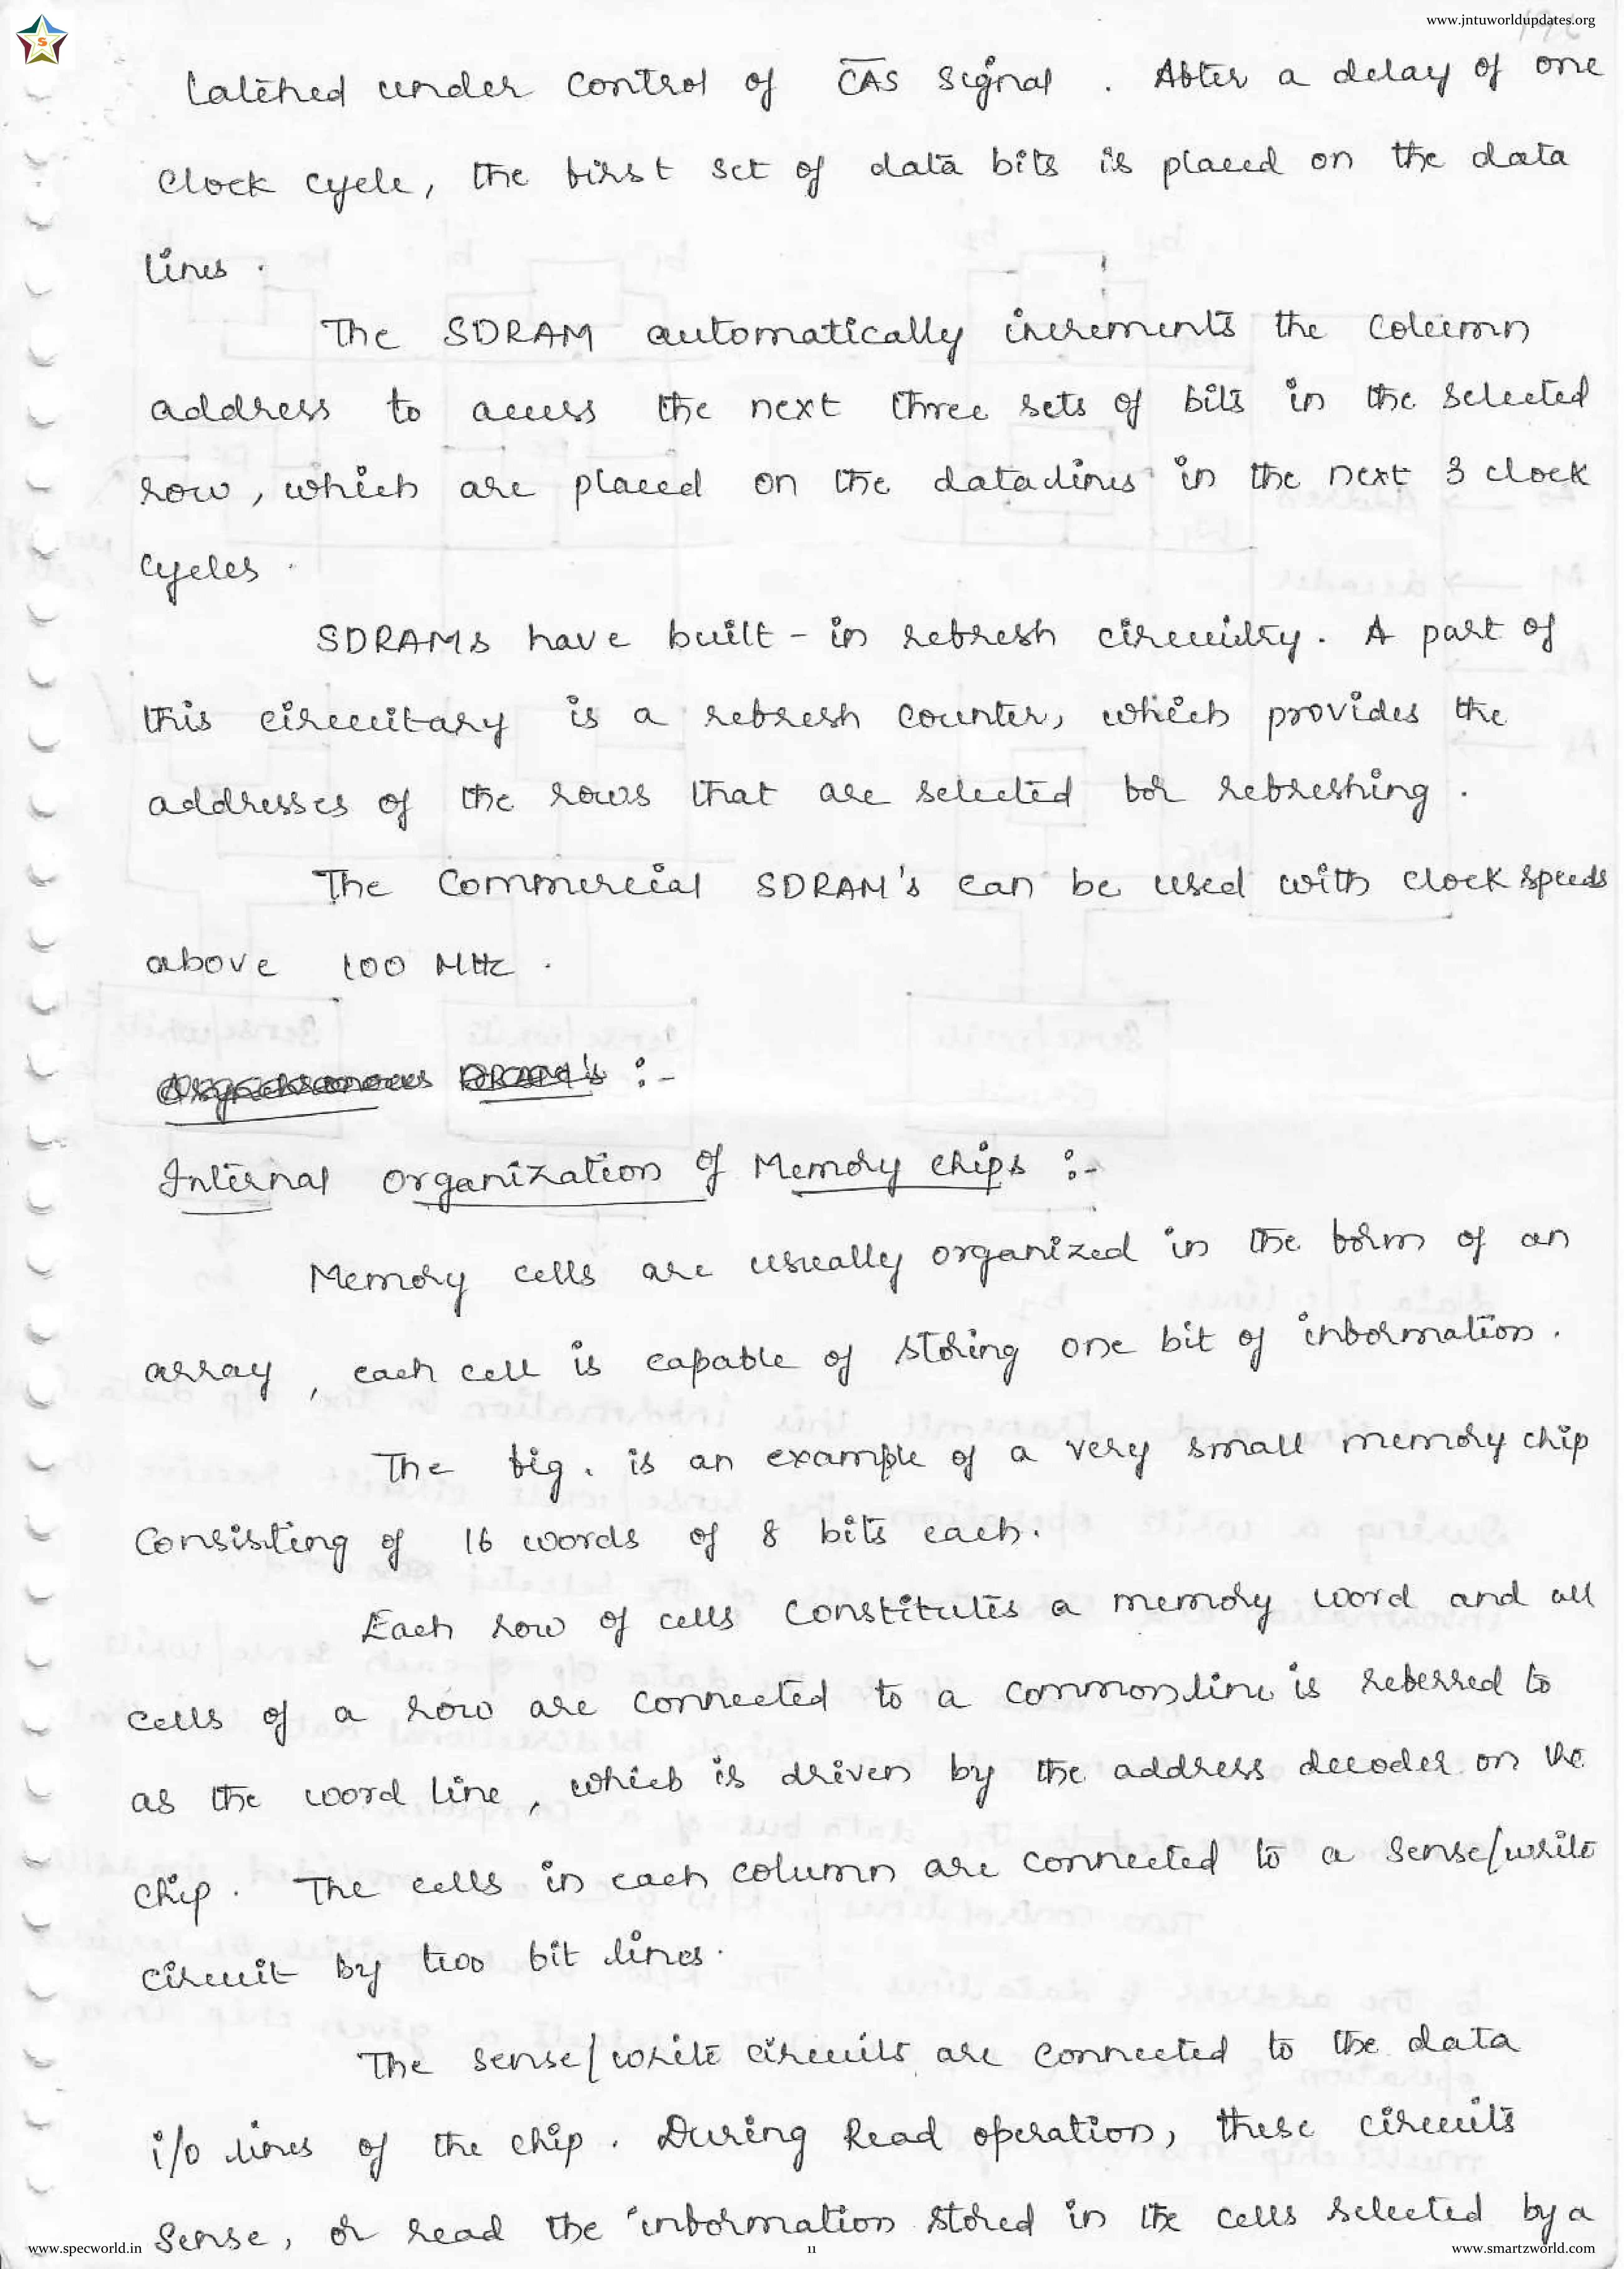 www.jntuworldupdates.org
S
latched under control of C̅A̅S̅ signal . After a delay of one
clock cycle, the first set of data bits is placed on the data
lines .
The SDRAM automatically increments the column
address to access the next three sets of bits in the selected
row, which are placed on the data lines in the next 3 clock
cycles .
SDRAMs have built - in refresh circuitry. A part of
this circuitary is a refresh counter, which provides the
addresses of the rows that are selected for refreshing .
The Commercial SDRAM's can be used with clock speeds
above 100 MHz .
Asynchronous DRAM's :-
Internal organization of Memory chips :-
Memory cells are usually organized in the form of an
array , each cell is capable of storing one bit of information .
The fig . is an example of a very small memory chip
Consisting of 16 words of 8 bits each.
Each row of cells constitutes a memory word and all
cells of a row are connected to a common line is referred to
as the word line , which is driven by the address decoder on the
chip . The cells in each column are connected to a sense/write
circuit by two bit lines.
The sense/write circuits are connected to the data
i/o lines of the chip . During Read operation, these circuits
Sense, or read the information stored in the cells selected by a
www.specworld.in
11
www.smartzworld.com